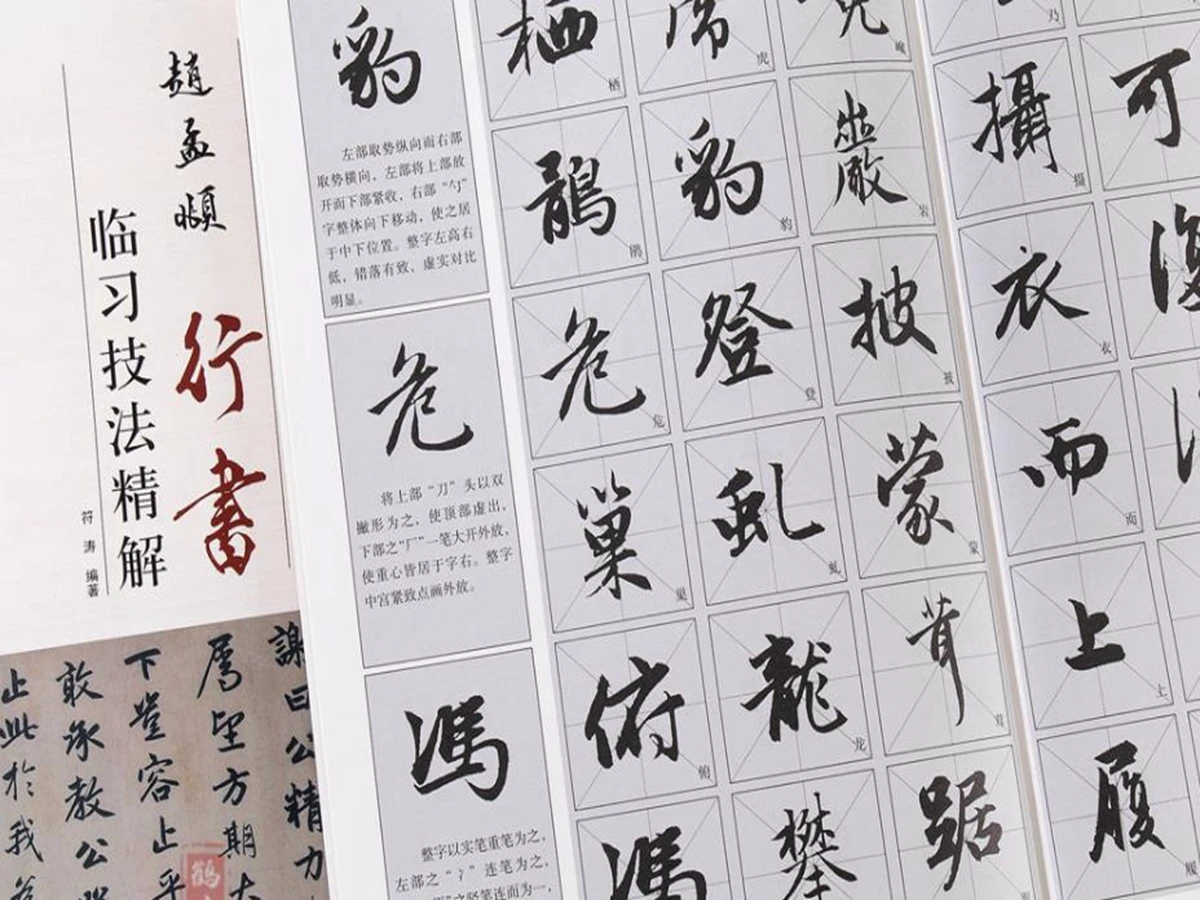 趙孟頫
行書
临习技法精解
符涛 编著
謝曰公精力
厲望方期大
下豈容止乎
敢承教公
止此於我
豹
左部取势纵向而右部
取势横向，左部将上部放
开而下部紧收，右部“勺”
字整体向下移动，使之居
于中下位置。整字左高右
低，错落有致、虚实对比
明显。
危
将上部“刀”头以双
撇形为之，使顶部虚出，
下部之“厂”一笔大开外放，
使重心皆居于字右。整字
中宫紧致点画外放。
馮
整字以实笔重笔为之，
左部之“冫”连笔为之，
之竖笔连而为一，
栖 栖
虎 虎
巉
鶻 鹘
豹 豹
巖 岩
危 危
登 登
披 披
巢 巢
虬 虬
蒙 蒙
俯 俯
龍 龙
茸 茸
馮
攀
踞
乃
攝 摄
可
衣 衣
復
而 而
上 上
履 履